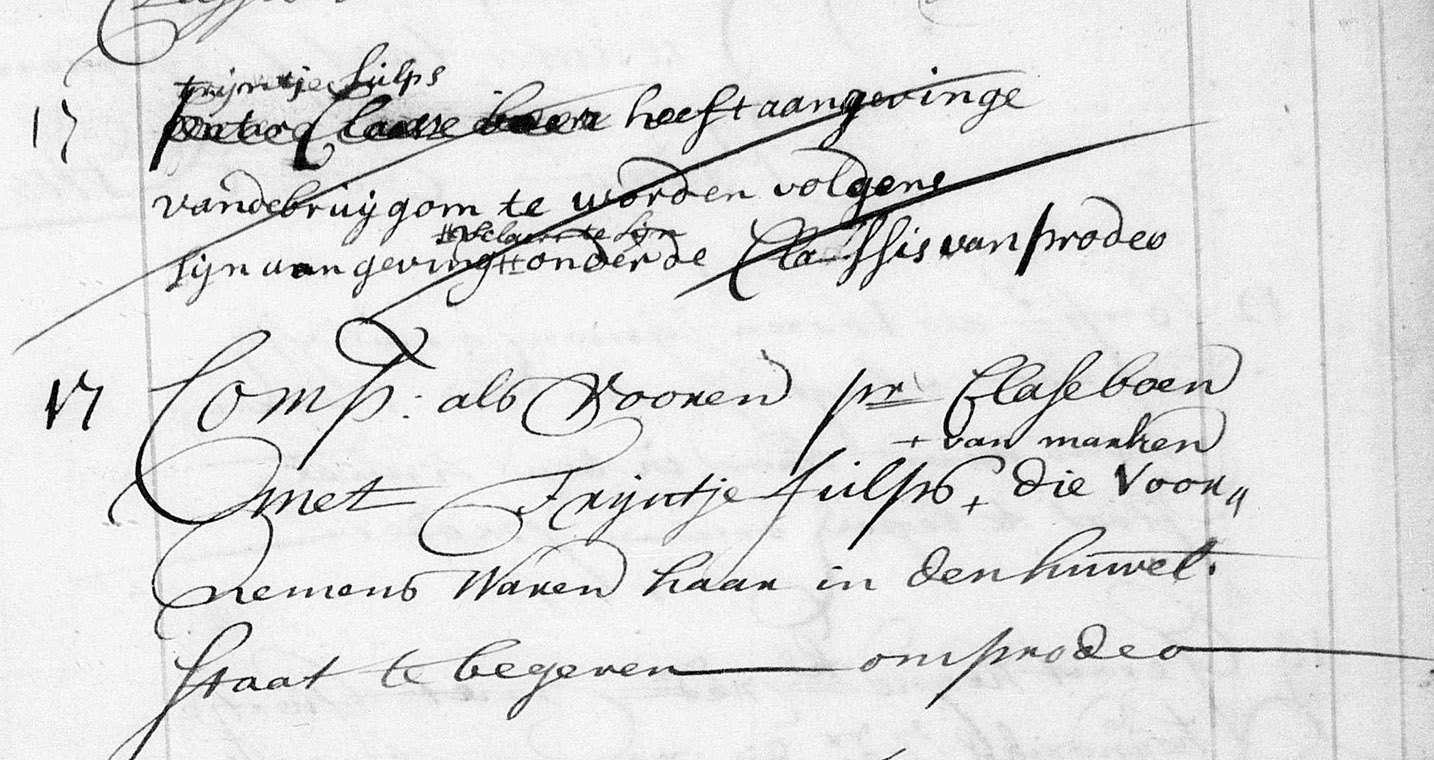 trijntje Sulps
17 pieter Claasse boen heeft aangevinge
vandebruijgom te worden volgens
# Verclaert te sijn
sijn aangeving # onder de Classis van prodeo
17 Comp: als Vooren pr Clase boen
+ van marken
met Trijntje Sulps + die Voor„
nemens Waren haar in den huwel.
staat te begeven — om prodeo —